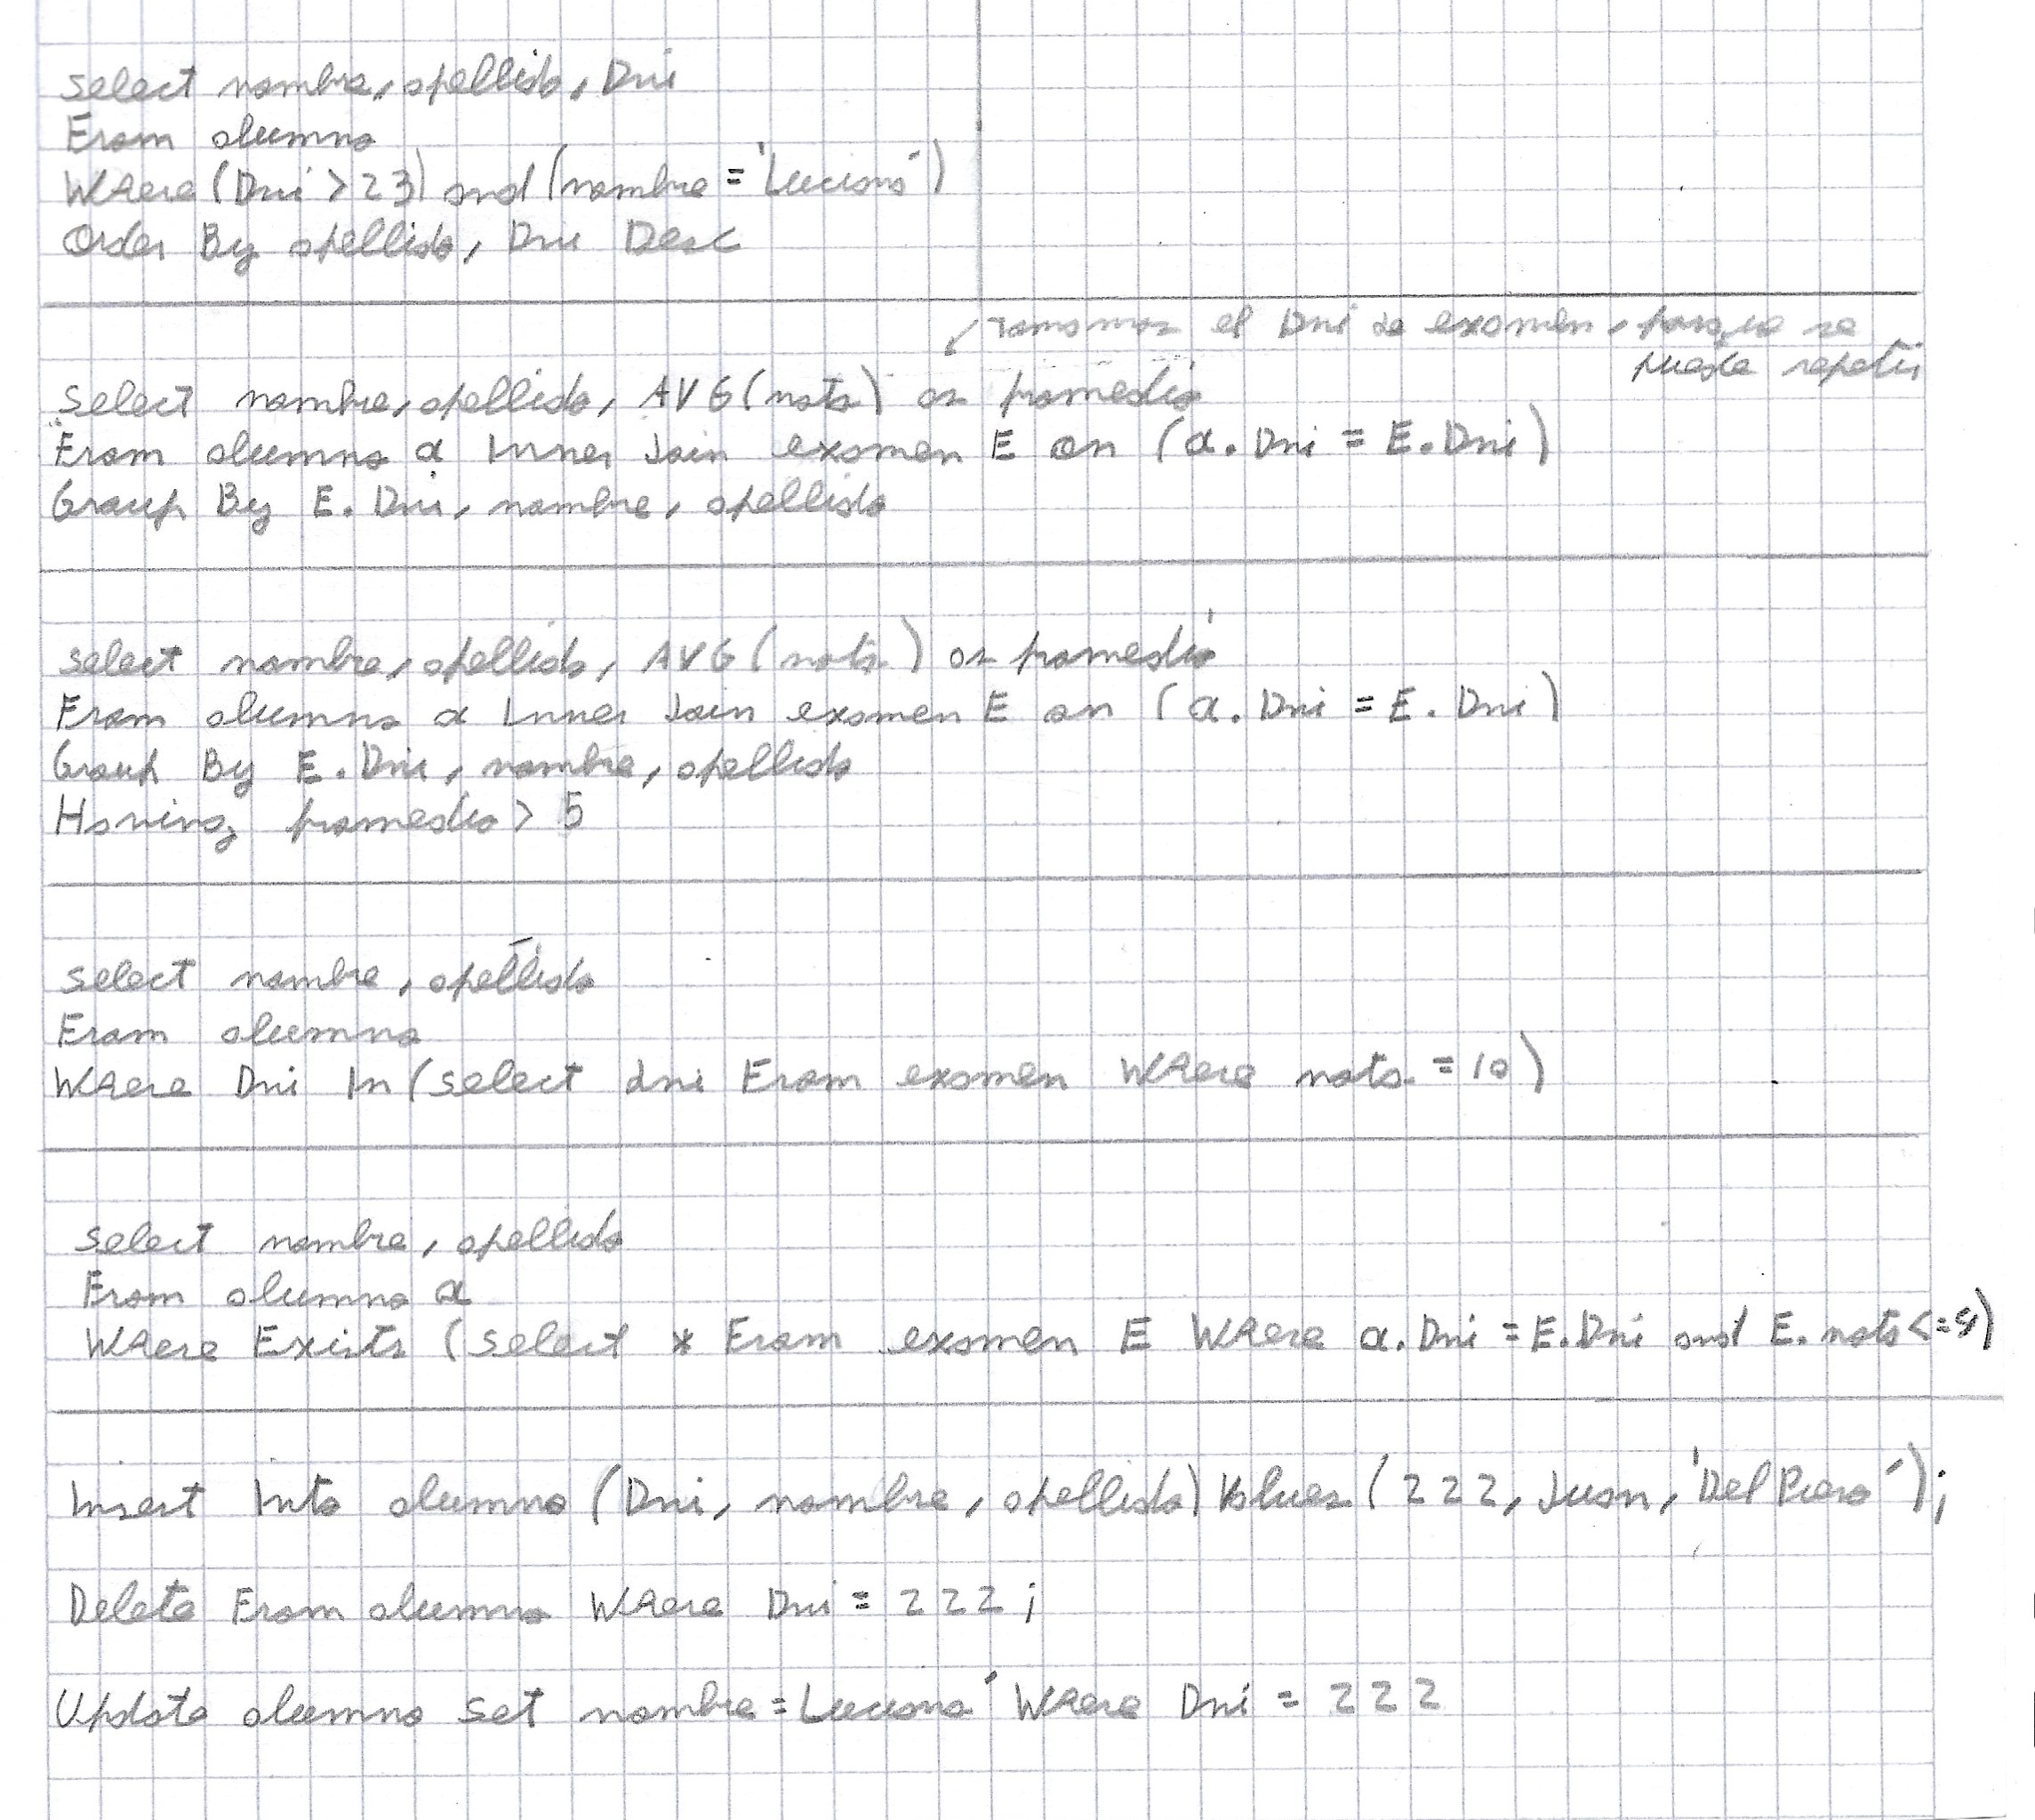 Select nombre, apellido, Dni
From alumno
Where (Dni > 23) and (nombre = 'Luciano')
Order By apellido, Dni Desc
Tomamos el Dni de examen, porque se
puede repetir
Select nombre, apellido, AVG(nota) as promedio
From alumno a Inner Join examen E on (a.Dni = E.Dni)
Group By E.Dni, nombre, apellido
Select nombre, apellido, AVG(nota) as promedio
From alumno a Inner Join examen E on (a.Dni = E.Dni)
Group By E.Dni, nombre, apellido
Having promedio > 5
Select nombre, apellido
From alumno
Where Dni In (select dni From examen Where nota = 10)
Select nombre, apellido
From alumno a
Where Exists (Select * From examen E Where a.Dni = E.Dni and E.nota <= )
Insert Into alumno (Dni, nombre, apellido) Values (222, Juan, 'Del Piero');
Delete From alumno Where Dni = 222;
Update alumno set nombre = Luciano' Where Dni = 222